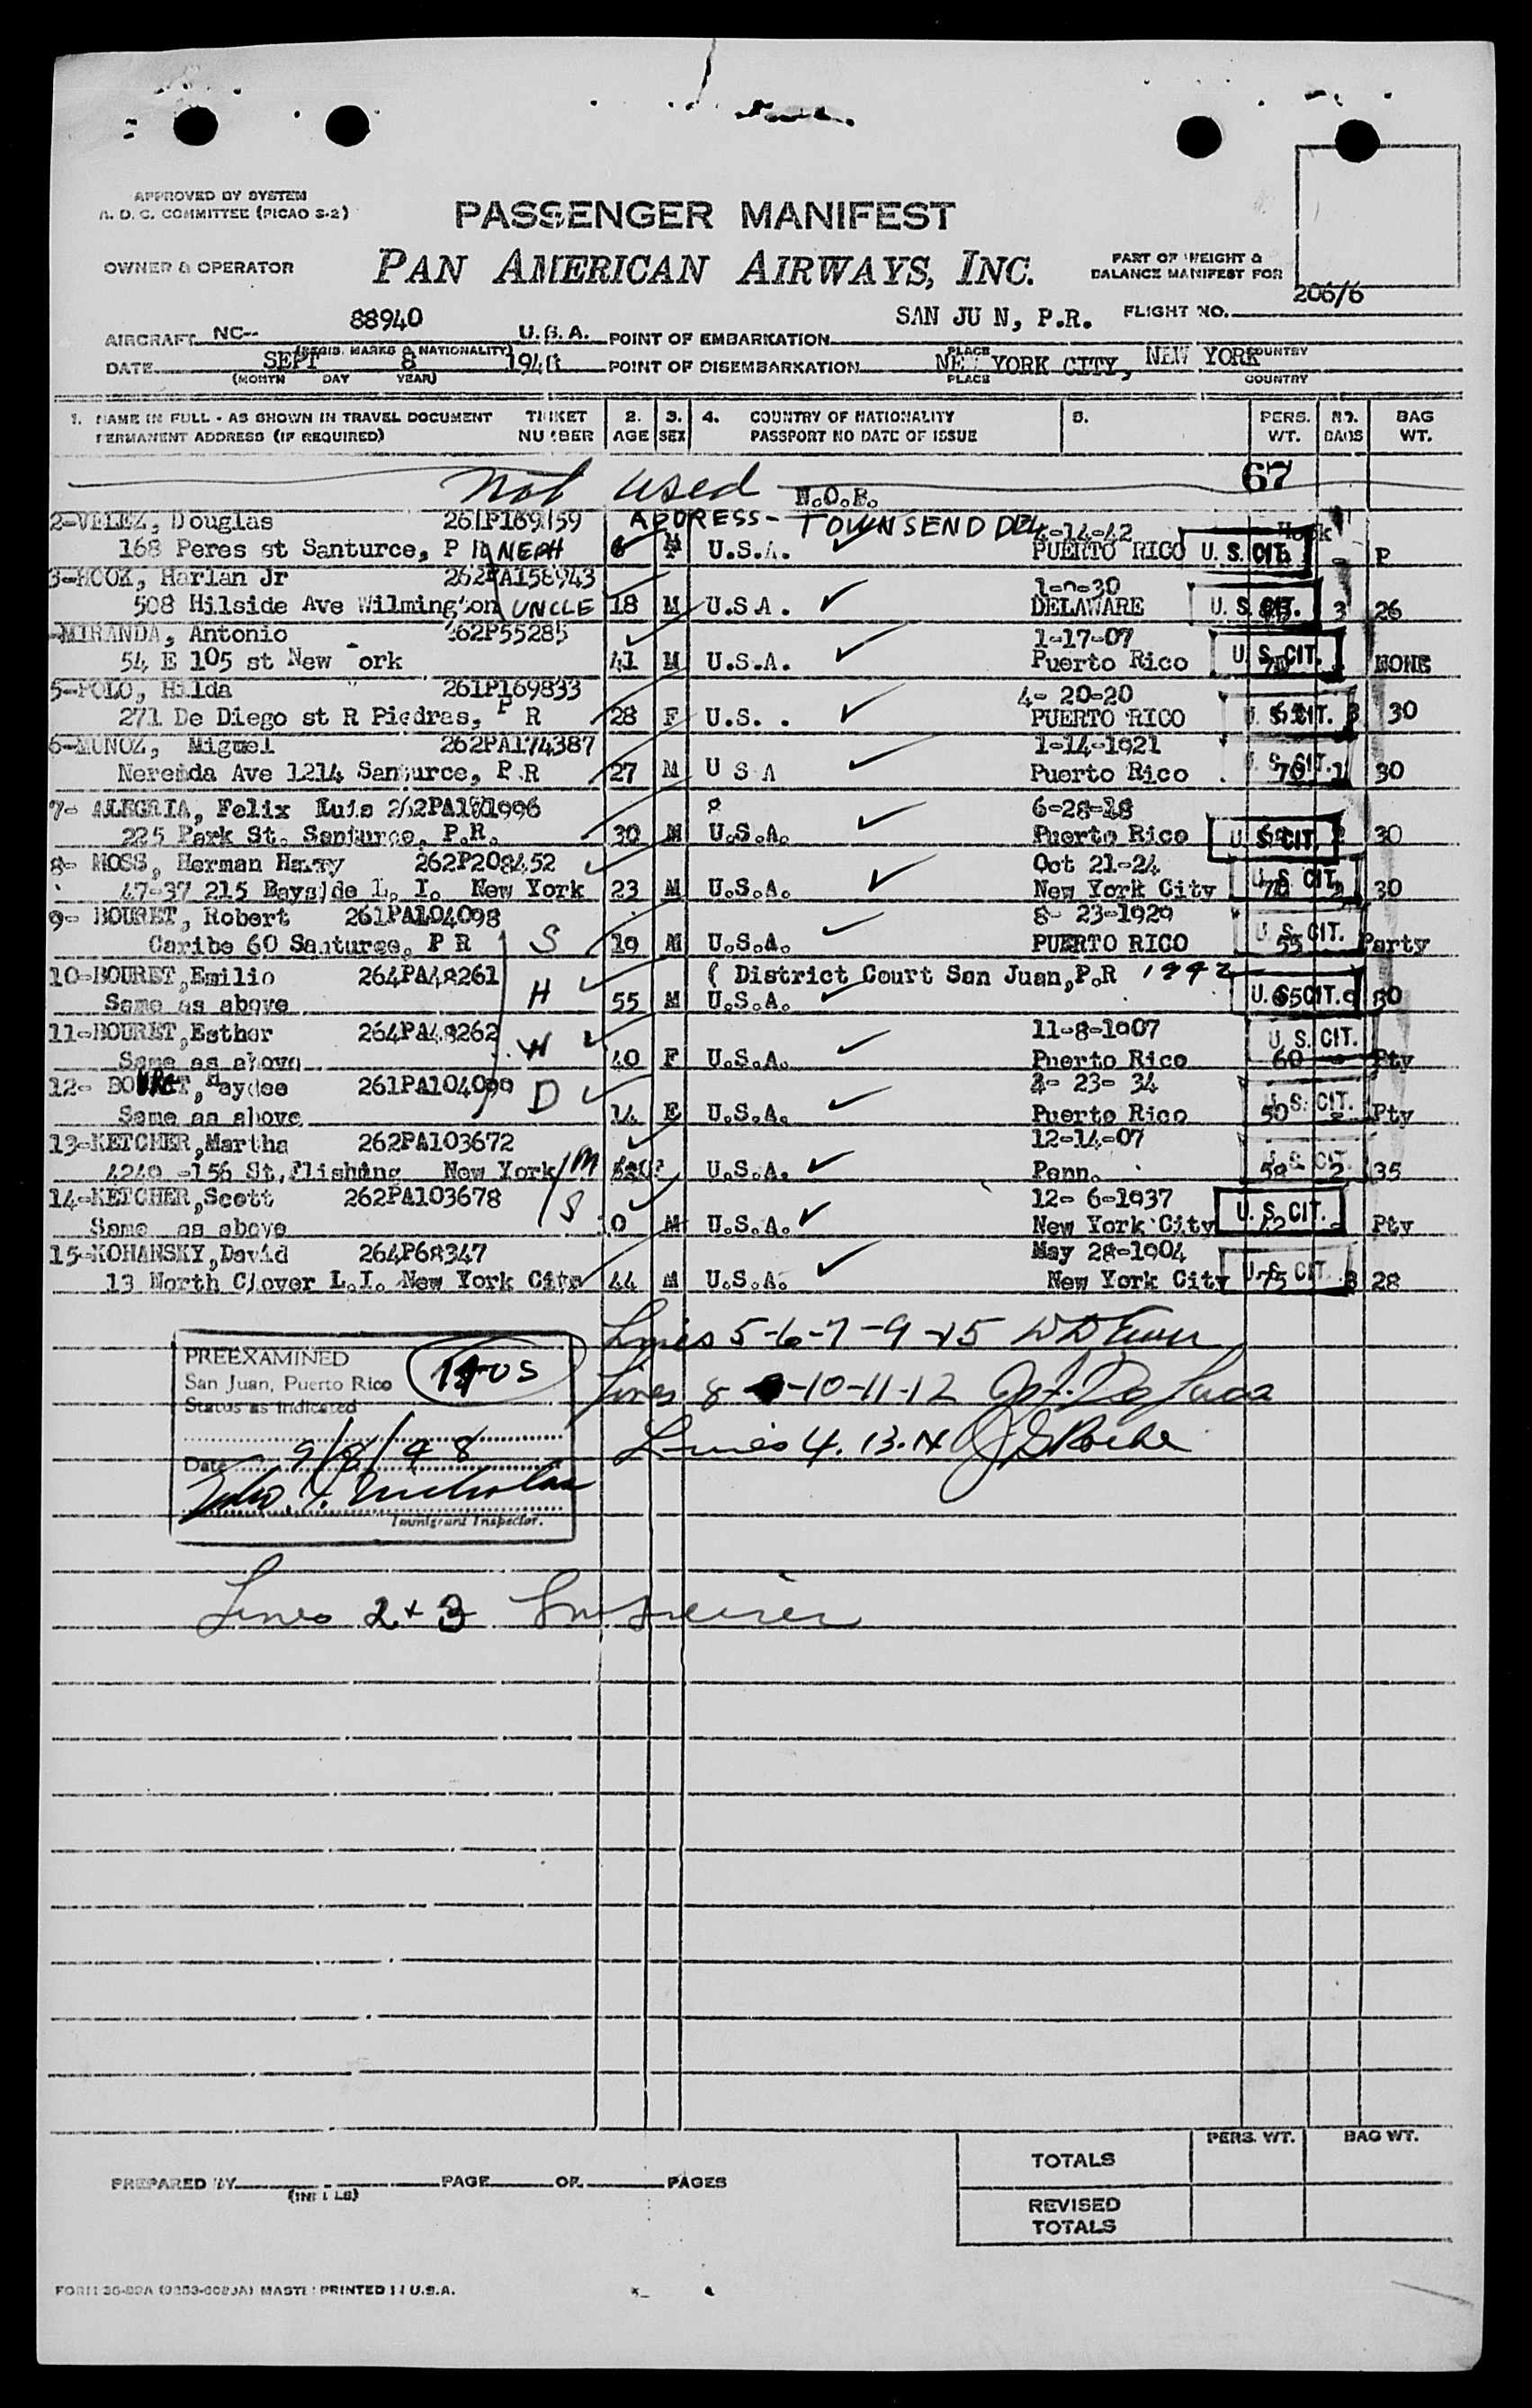 APPROVED BY SYSTEM
A. D. C. COMMITTEE (PICAO S-2)
PASSENGER MANIFEST
OWNER & OPERATOR
PAN AMERICAN AIRWAYS, INC.
PART OF WEIGHT &
BALANCE MANIFEST FOR
206/6
FLIGHT NO.
AIRCRAFT NC-- 88940 U.S.A. POINT OF EMBARKATION SAN JU N, P.R.
(REGIS. MARKS & NATIONALITY) PLACE COUNTRY
DATE SEPT 8 1948 POINT OF DISEMBARKATION NEW YORK CITY, NEW YORK
(MONTH DAY YEAR) PLACE COUNTRY
1. NAME IN FULL - AS SHOWN IN TRAVEL DOCUMENT TICKET 2. 3. 4. COUNTRY OF NATIONALITY 5. PERS. NO. BAG
PERMANENT ADDRESS (IF REQUIRED) NUMBER AGE SEX PASSPORT NO DATE OF ISSUE WT. BAGS WT.
Not used N.O.B. 67
2-VELEZ, Douglas 261P169159 ADDRESS- TOWNSEND DEL 4-14-42 Hook
168 Peres st Santurce, P R NEPH 6 M U.S.A. PUERTO RICO U. S. CIT. P
3-HOOK, Harlan Jr 262PA158943
508 Hilside Ave Wilmington UNCLE 18 M U.S.A. DELAWARE U. S. CIT. 3 26
-MIRANDA, Antonio 262P55285 1-17-07
54 E 105 st New ork 41 M U.S.A. Puerto Rico U. S. CIT. NONE
5-POLO, Hilda 261P169833 4- 20-20
271 De Diego st R Piedras, P R 28 F U.S. . PUERTO RICO U. S. CIT. 3 30
6-MUNOZ, Miguel 262PA174387 1-14-1921
Nereida Ave 1214 Santurce, P.R 27 M U S A Puerto Rico U. S. CIT. 70 1 30
7- ALEGRIA, Felix Luis 262PA171996 6-28-18
225 Park St. Santurce, P.R. 30 M U.S.A. Puerto Rico U. S. CIT. 30
8- MOSS, Herman Harry 262P208452 Oct 21-24
47-37 215 Bayside L. I. New York 23 M U.S.A. New York City U. S. CIT. 30
9- BOURET, Robert 261PA104098 8- 23-1929
Caribe 60 Santurce, P R S 19 M U.S.A. PUERTO RICO U. S. CIT. 55 Party
10-BOURET,Emilio 264PA48261 ( District Court San Juan,P.R 1942
Same as above H 55 M U.S.A. U. S. CIT. 65 9 50
11-BOURET,Esther 264PA48262 11-8-1907
Same as above W 40 F U.S.A. Puerto Rico U. S. CIT. 60 - Pty
12- BOURET, Haydee 261PA104099 23- 34
Same as above D 14 F U.S.A. Puerto Rico U. S. CIT. 50 - Pty
13-KETCHER,Martha 262PA103672 12-14-07
4240 -156 St,Flishing New York M U.S.A. Penn. U. S. CIT. 58 2 35
14-KETCHER,Scott 262PA103678 12- 6-1937
Same as above S 10 M U.S.A. New York City U. S. CIT. 42 - Pty
15-KOHANSKY,David 264P68347 May 28-1904
13 North Clover L.I. New York City 44 M U.S.A. New York City U. S. CIT. 75 3 28
Lines 5-6-7-9-15
PREEXAMINED
San Juan, Puerto Rico
Status as indicated
Lines 8 -10-11-12
Lines 4.13.14
Date 9/8/48
Immigrant Inspector.
Lines 2 + 3
PERS. WT. BAG WT.
TOTALS
PREPARED BY PAGE OF PAGES
(INITIALS)
REVISED
TOTALS
PRINTED IN U.S.A.